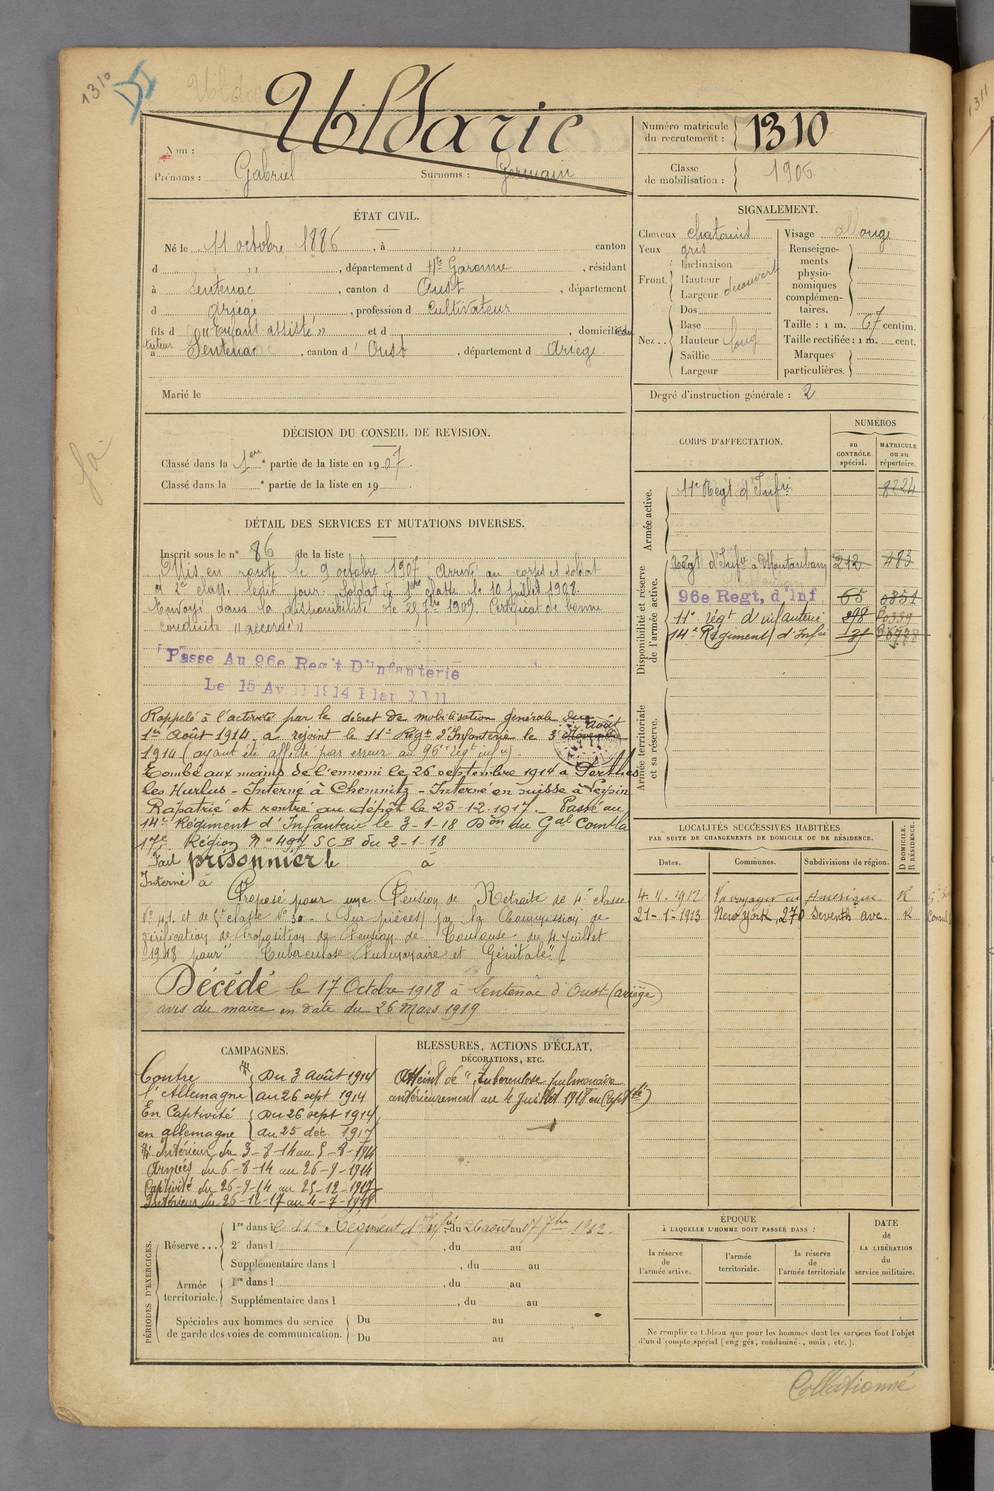 1310
Uldaric
Nom :
Prénoms : Gabriel Surnoms : Germain
Numéro matricule du recrutement : 1310
Classe de mobilisation : 1906
ÉTAT CIVIL.
Né le 11 octobre 1886, à " canton
d " , département d Hte Garonne, résidant
à Sentenac, canton d Oust, département
d Ariège, profession d Cultivateur
fils d "Enfant assisté" et d , domicilié
tuteur
à Sentenac, canton d' Oust, département d Ariège
Marié le
SIGNALEMENT.
Cheveux chataind
Yeux gris
Front. Inclinaison
Hauteur découvert
Largeur
Nez . . Dos
Base
Hauteur long
Saillie
Largeur
Visage allongé
Renseignements physionomiques complémentaires.
Taille : 1 m. 67 centim.
Taille rectifiée : 1 m. cent.
Marques particulières.
Degré d'instruction générale : 2
DÉCISION DU CONSEIL DE REVISION.
Classé dans la 1ere partie de la liste en 1907
Classé dans la e partie de la liste en 19
DÉTAIL DES SERVICES ET MUTATIONS DIVERSES.
Inscrit sous le n° 86 de la liste
Mis en route le 9 octobre 1907. Arrivé au corps et soldat
de 2e classe ledit jour. Soldat de 1ere classe le 10 juillet 1908.
Envoyé dans la disponibilité le 25 7bre 1909. Certificat de bonne
conduite "accordé"
Passe Au 96e Reg't D'Infanterie
Le 15 Avril 1914
Rappelé à l'activité par le décret de mobilisation générale du
1er Août 1914, a rejoint le 11e Régt d'Infanterie le 3 août
1914 (ayant été affecté par erreur au 96e régt inf)
Tombé aux mains de l'ennemi le 26 septembre 1914 à Perthes
les Hurlus - Interné à Chemnitz - Interné en suisse à Leysin
Rapatrié et rentré au dépôt le 25-12-1917. Passé au
14e Régiment d'Infanterie le 3-1-18 Don du Gal Comdt la
17e Région N° 497 SCB du 2-1-18
Fait prisonnier le à
Interné à
Proposé pour une Pension de Retraite de 4e classe
N° 41 et de 5e classe N° 30. (Sur pièces) par la Commission de
vérification de Proposition de Pension de Toulouse du 4 Juillet
1918 pour "Tuberculose Pulmonaire et Génitale"
Décédé le 17 Octobre 1918 à Sentenac d'Oust (Ariège)
avis du maire en date du 26 Mars 1919
CORPS D'AFFECTATION.
NUMÉROS
au CONTRÔLE spécial.
MATRICULE ou au répertoire.
Armée active.
11e Régt d'Infie 8224
Disponibilité et réserve de l'armée active.
Régt d'Infie à Montauban 212 483
96e Regt, d'Inf 65 0851
11e régt d'infanterie 298
14e Régiment d'Infie
Armée territoriale et sa réserve.
LOCALITÉS SUCCESSIVES HABITÉES
PAR SUITE DE CHANGEMENTS DE DOMICILE OU DE RÉSIDENCE.
Dates. Communes. Subdivisions de région. D DOMICILE. R RÉSIDENCE.
4-4-1912 Va voyager en Amérique R
21-1-1913 New York, 270 Seventh ave. R
CAMPAGNES.
Contre l'Allemagne Du 3 Août 1914 au 26 sept 1914
En Captivité en Allemagne Du 26 sept 1914 au 25 déc. 1917
Intérieur du 3-8-14 au 5-8-1914
Armées du 6-8-14 au 26-9-1914
Captivité du 26-9-14 au 25-12-1917
Intérieur du 26-12-17 au 4-7-1918
BLESSURES, ACTIONS D'ÉCLAT,
DÉCORATIONS, ETC.
Atteint de "tuberculose pulmonaire
antérieurement au 4 Juillet 1918 en (captté)
PÉRIODES D'EXERCICES.
Réserve ... 1re dans le 11e Régiment d'Infie du 26 août au 17 7bre 1912.
2e dans l , du au
Supplémentaire dans l , du au
Armée territoriale. 1re dans l , du au
Supplémentaire dans l , du au
Spéciales aux hommes du service
de garde des voies de communication. Du au
Du au
ÉPOQUE
À LAQUELLE L'HOMME DOIT PASSER DANS :
la réserve de l'armée active.
l'armée territoriale.
la réserve de l'armée territoriale
DATE
de
LA LIBÉRATION
du
service militaire.
Ne remplir ce tableau que pour les hommes dont les services font l'objet
d'un décompte spécial (engagés, condamnés, omis, etc.).
Collationné
1311